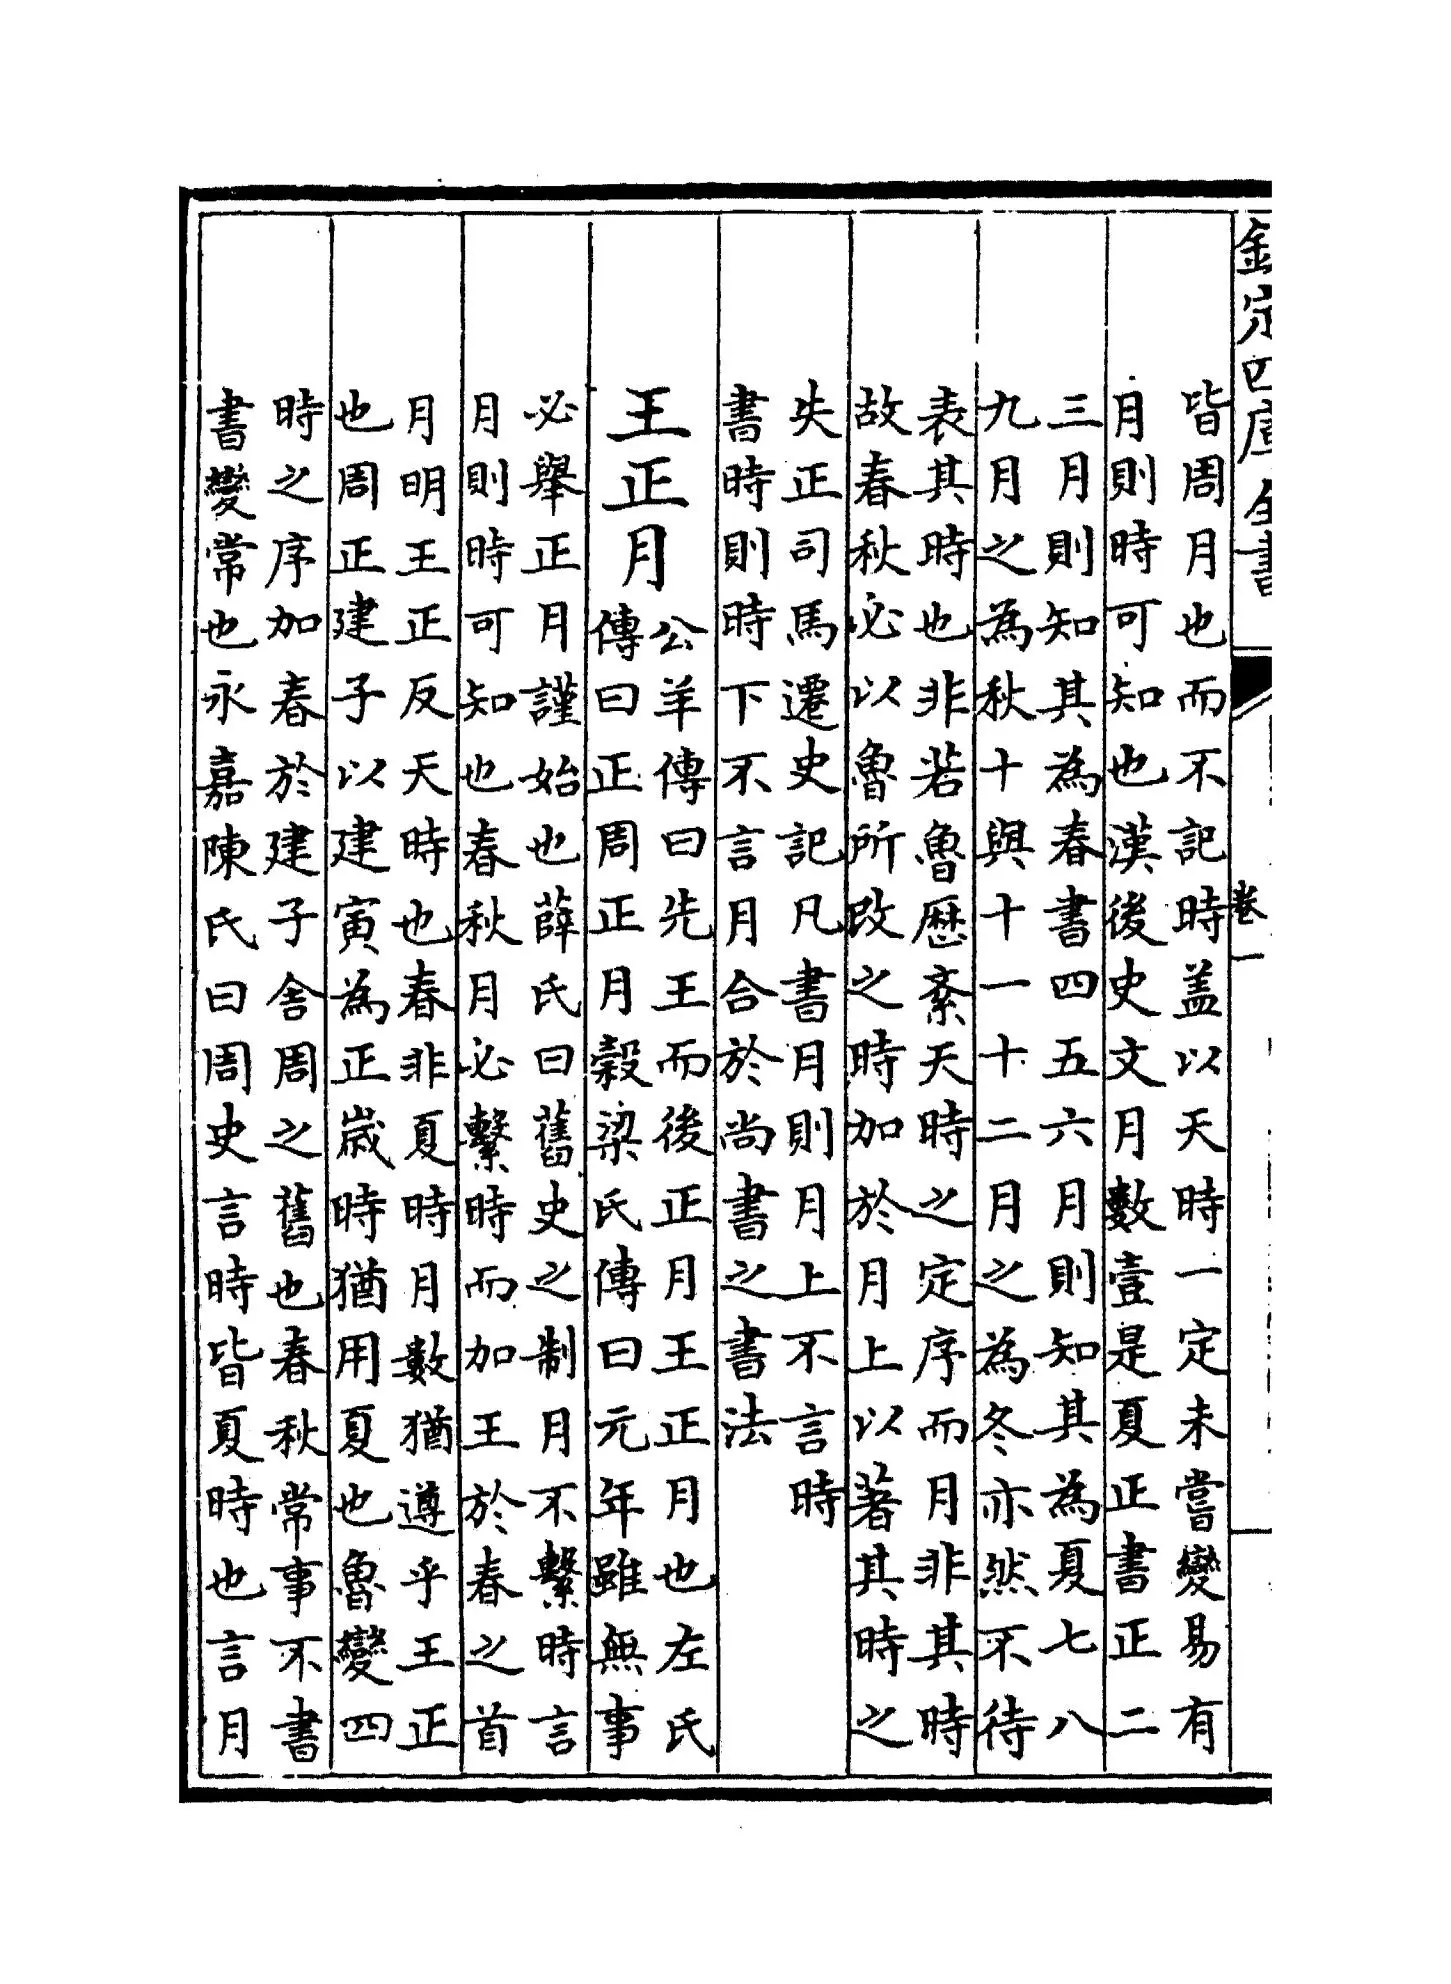 欽定四庫全書
卷一
皆周月也而不記時盖以天時一定未嘗變易有
月則時可知也漢後史文月數壹是夏正書正二
三月則知其為春書四五六月則知其為夏七八
九月之為秋十與十一十二月之為冬亦然不待
表其時也非若魯歷紊天時之定序而月非其時
故春秋必以魯所改之時加於月上以著其時之
失正司馬遷史記凡書月則月上不言時
書時則時下不言月合於尚書之書法
王正月
公羊傳曰先王而後正月王正月也左氏
傳曰正周正月穀梁氏傳曰元年雖無事
必舉正月謹始也薛氏曰舊史之制月不繫時言
月則時可知也春秋月必繫時而加王於春之首
月明王正反天時也春非夏時月數猶遵乎王正
也周正建子以建寅為正歲時猶用夏也魯變四
時之序加春於建子舍周之舊也春秋常事不書
書變常也永嘉陳氏曰周史言時皆夏時也言月